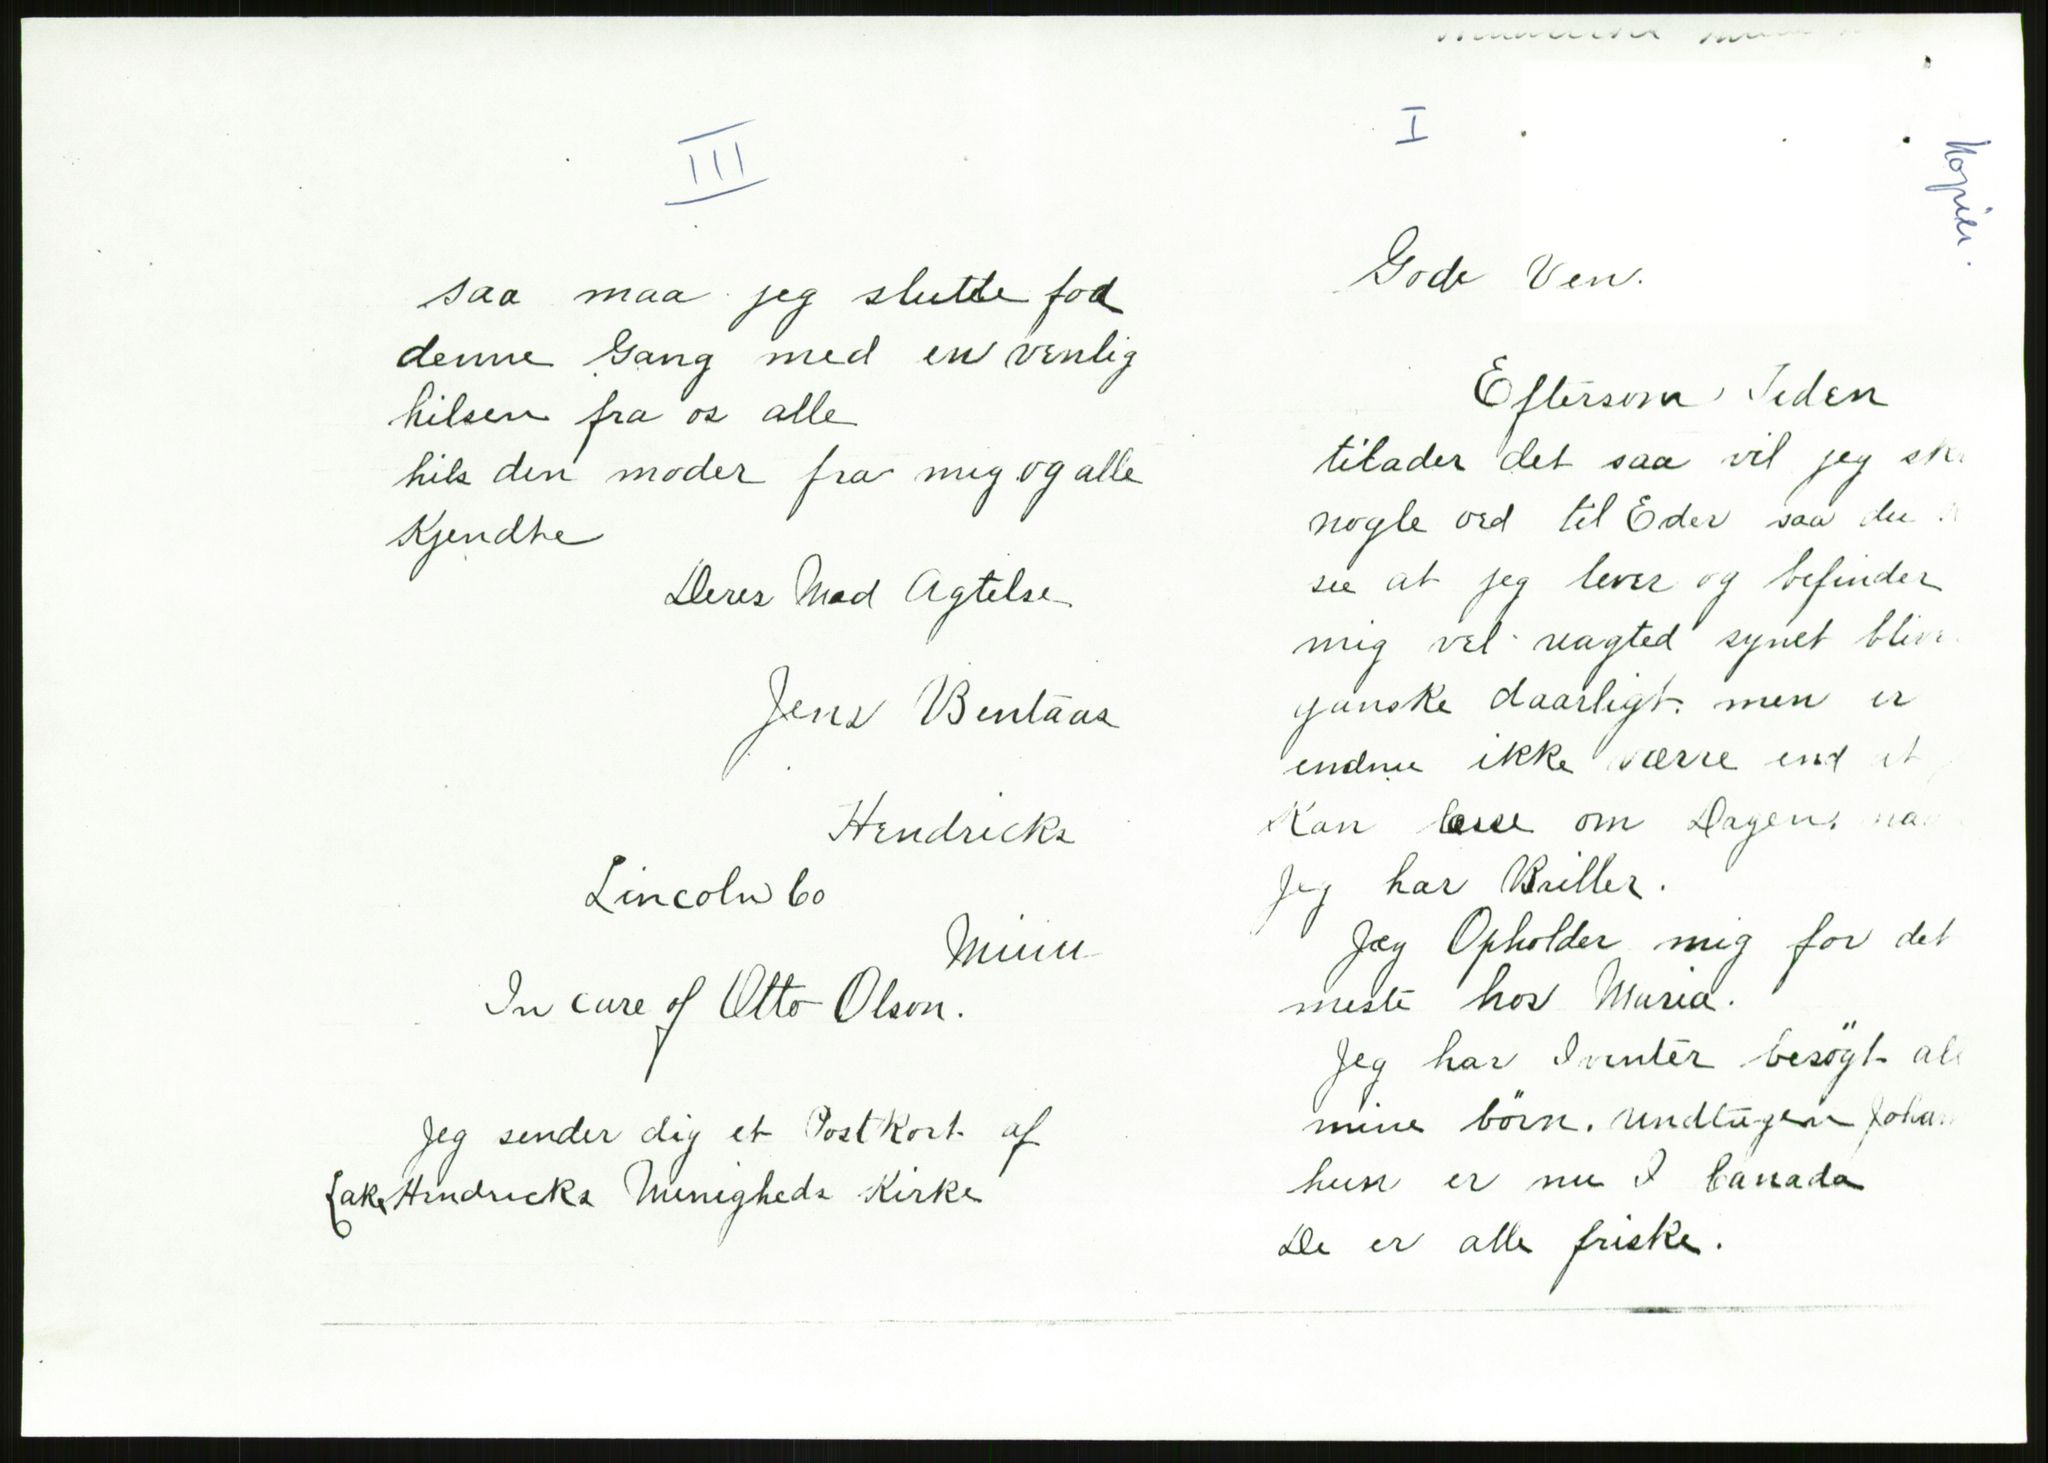 III
saa maa jeg slutte fod
denne Gang med en venlig
hilsen fra os alle
hils den moder fra mig og alle
Kjendte
Deres Med Agtelse
Jens Bentaas
Hendricks
Lincoln Co
Minn
In care of Otto Olson.
Jeg sender dig et Postkort af
Lake Hendricks Menigheds Kirke
I
Kopier.
Gode Ven.
Eftersom Teden
tilader det saa vil jeg sk
nogle ord til Eder saa du
see at jeg lever og befinder
mig vel uagted synet bliv
ganske daarligt. men er
endnu ikke værre end at
Kan læse om Dagen. naa
Jeg har Briller.
Jeg Opholder mig for det
meste hos Maria.
Jeg har I vinter besögt all
mine börn. undtagen Johan
hun er nu I Canada
De er alle friske.